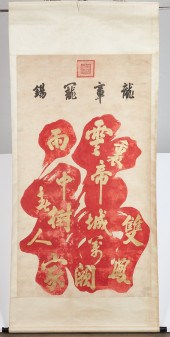 龍章寵錫
雲裏帝城雙鳳闕
雨中春樹萬人家